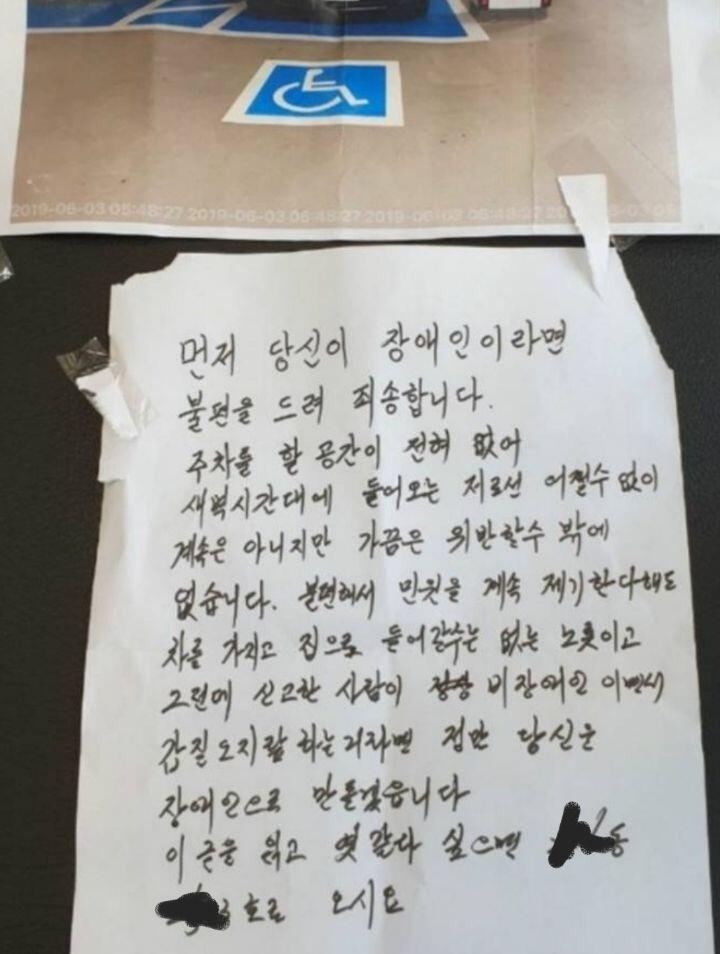 2019-06-03 05:48:27 2019-06-03 05:48:27 2019-06-03 05:48:27
먼저 당신이 장애인이라면
불편을 드려 죄송합니다.
주차를 할 공간이 전혀 없어
새벽시간대에 들어오는 저로선 어쩔수 없이
계속은 아니지만 가끔은 위반할수 밖에
없습니다. 불편해서 민원을 계속 제기한다해도
차를 가지고 집으로 들어갈수는 없는 노릇이고
그런데 신고한 사람이 비장애인 이면서
갑질 오지랖 하는거라면 당신을
장애인으로 만들겠습니다
이 글을 읽고 엿 같다 싶으면 동
호로 오시요